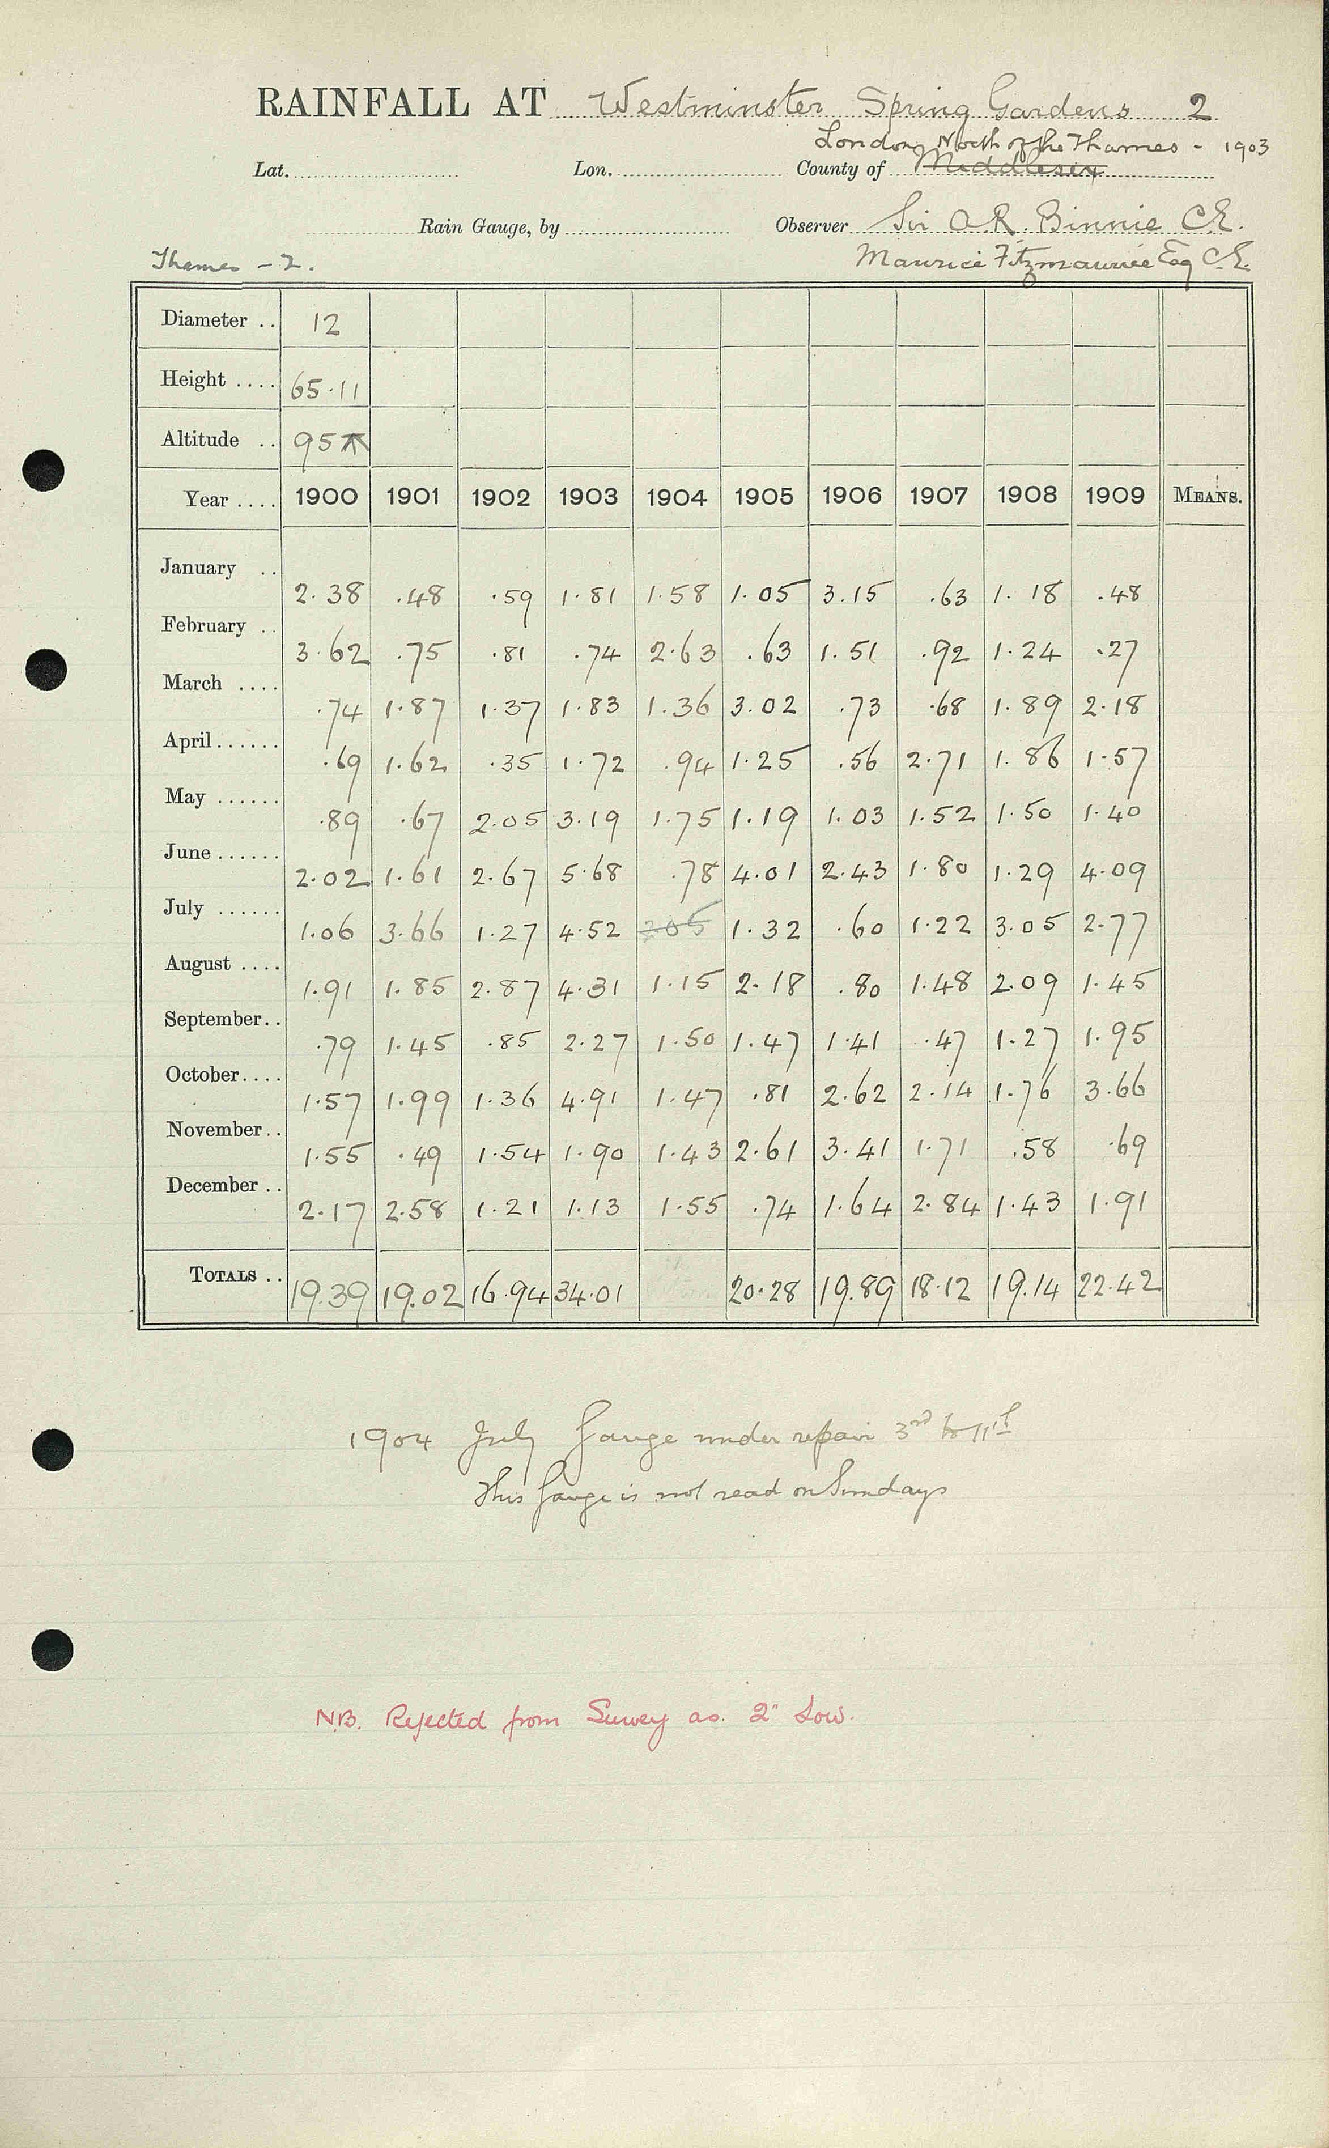 RAINFALL AT Westminster Spring Gardens 2
London North of the Thames - 1903
Lat. Lon. County of Middlesex
Rain Gauge, by Observer Sir A R Binnie C.E.
Thames - 2. Maurice Fitzmaurice Esq C.E.
Diameter .. 12
Height .... 65.11
Altitude .. 95
Year .... 1900 1901 1902 1903 1904 1905 1906 1907 1908 1909 MEANS.
January .. 2.38 .48 .59 1.81 1.58 1.05 3.15 .63 1.18 .48
February .. 3.62 .75 .81 .74 2.63 .63 1.51 .92 1.24 .27
March .... .74 1.87 1.37 1.83 1.36 3.02 .73 .68 1.89 2.18
April ...... .69 1.62 .35 1.72 .94 1.25 .56 2.71 1.86 1.57
May ...... .89 .67 2.05 3.19 1.75 1.19 1.03 1.52 1.50 1.40
June ...... 2.02 1.61 2.67 5.68 .78 4.01 2.43 1.80 1.29 4.09
July ...... 1.06 3.66 1.27 4.52 1.32 .60 1.22 3.05 2.77
August .... 1.91 1.85 2.87 4.31 1.15 2.18 .80 1.48 2.09 1.45
September .. .79 1.45 .85 2.27 1.50 1.47 1.41 .47 1.27 1.95
October .... 1.57 1.99 1.36 4.91 1.47 .81 2.62 2.14 1.76 3.66
November .. 1.55 .49 1.54 1.90 1.43 2.61 3.41 1.71 .58 .69
December .. 2.17 2.58 1.21 1.13 1.55 .74 1.64 2.84 1.43 1.91
TOTALS .. 19.39 19.02 16.94 34.01 20.28 19.89 18.12 19.14 22.42
1904 July Gauge under repair 3rd to 11th
This Gauge is not read on Sundays
NB. Rejected from Survey as 2" Low.